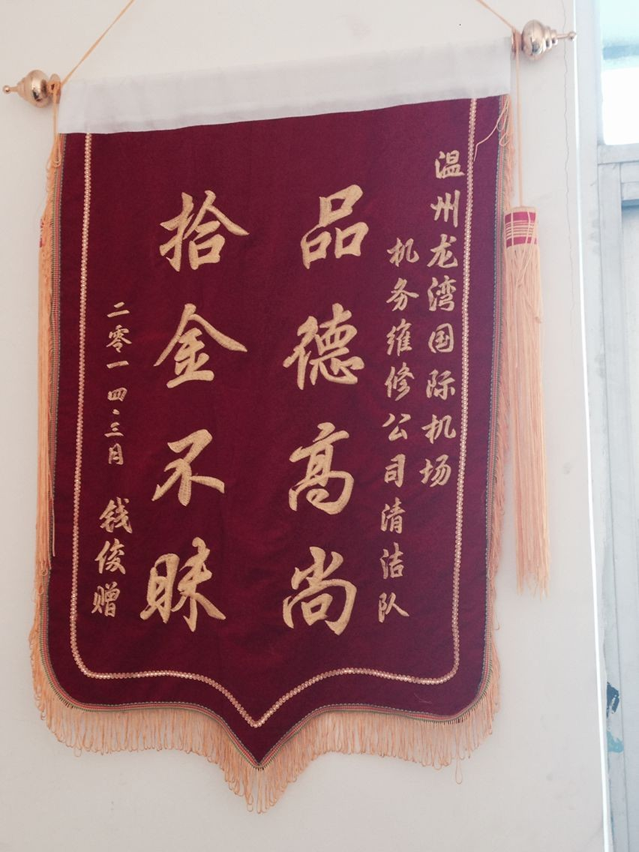 温州龙湾国际机场
机务维修公司清洁队
品德高尚
拾金不昧
二零一四.三月 钱俊赠